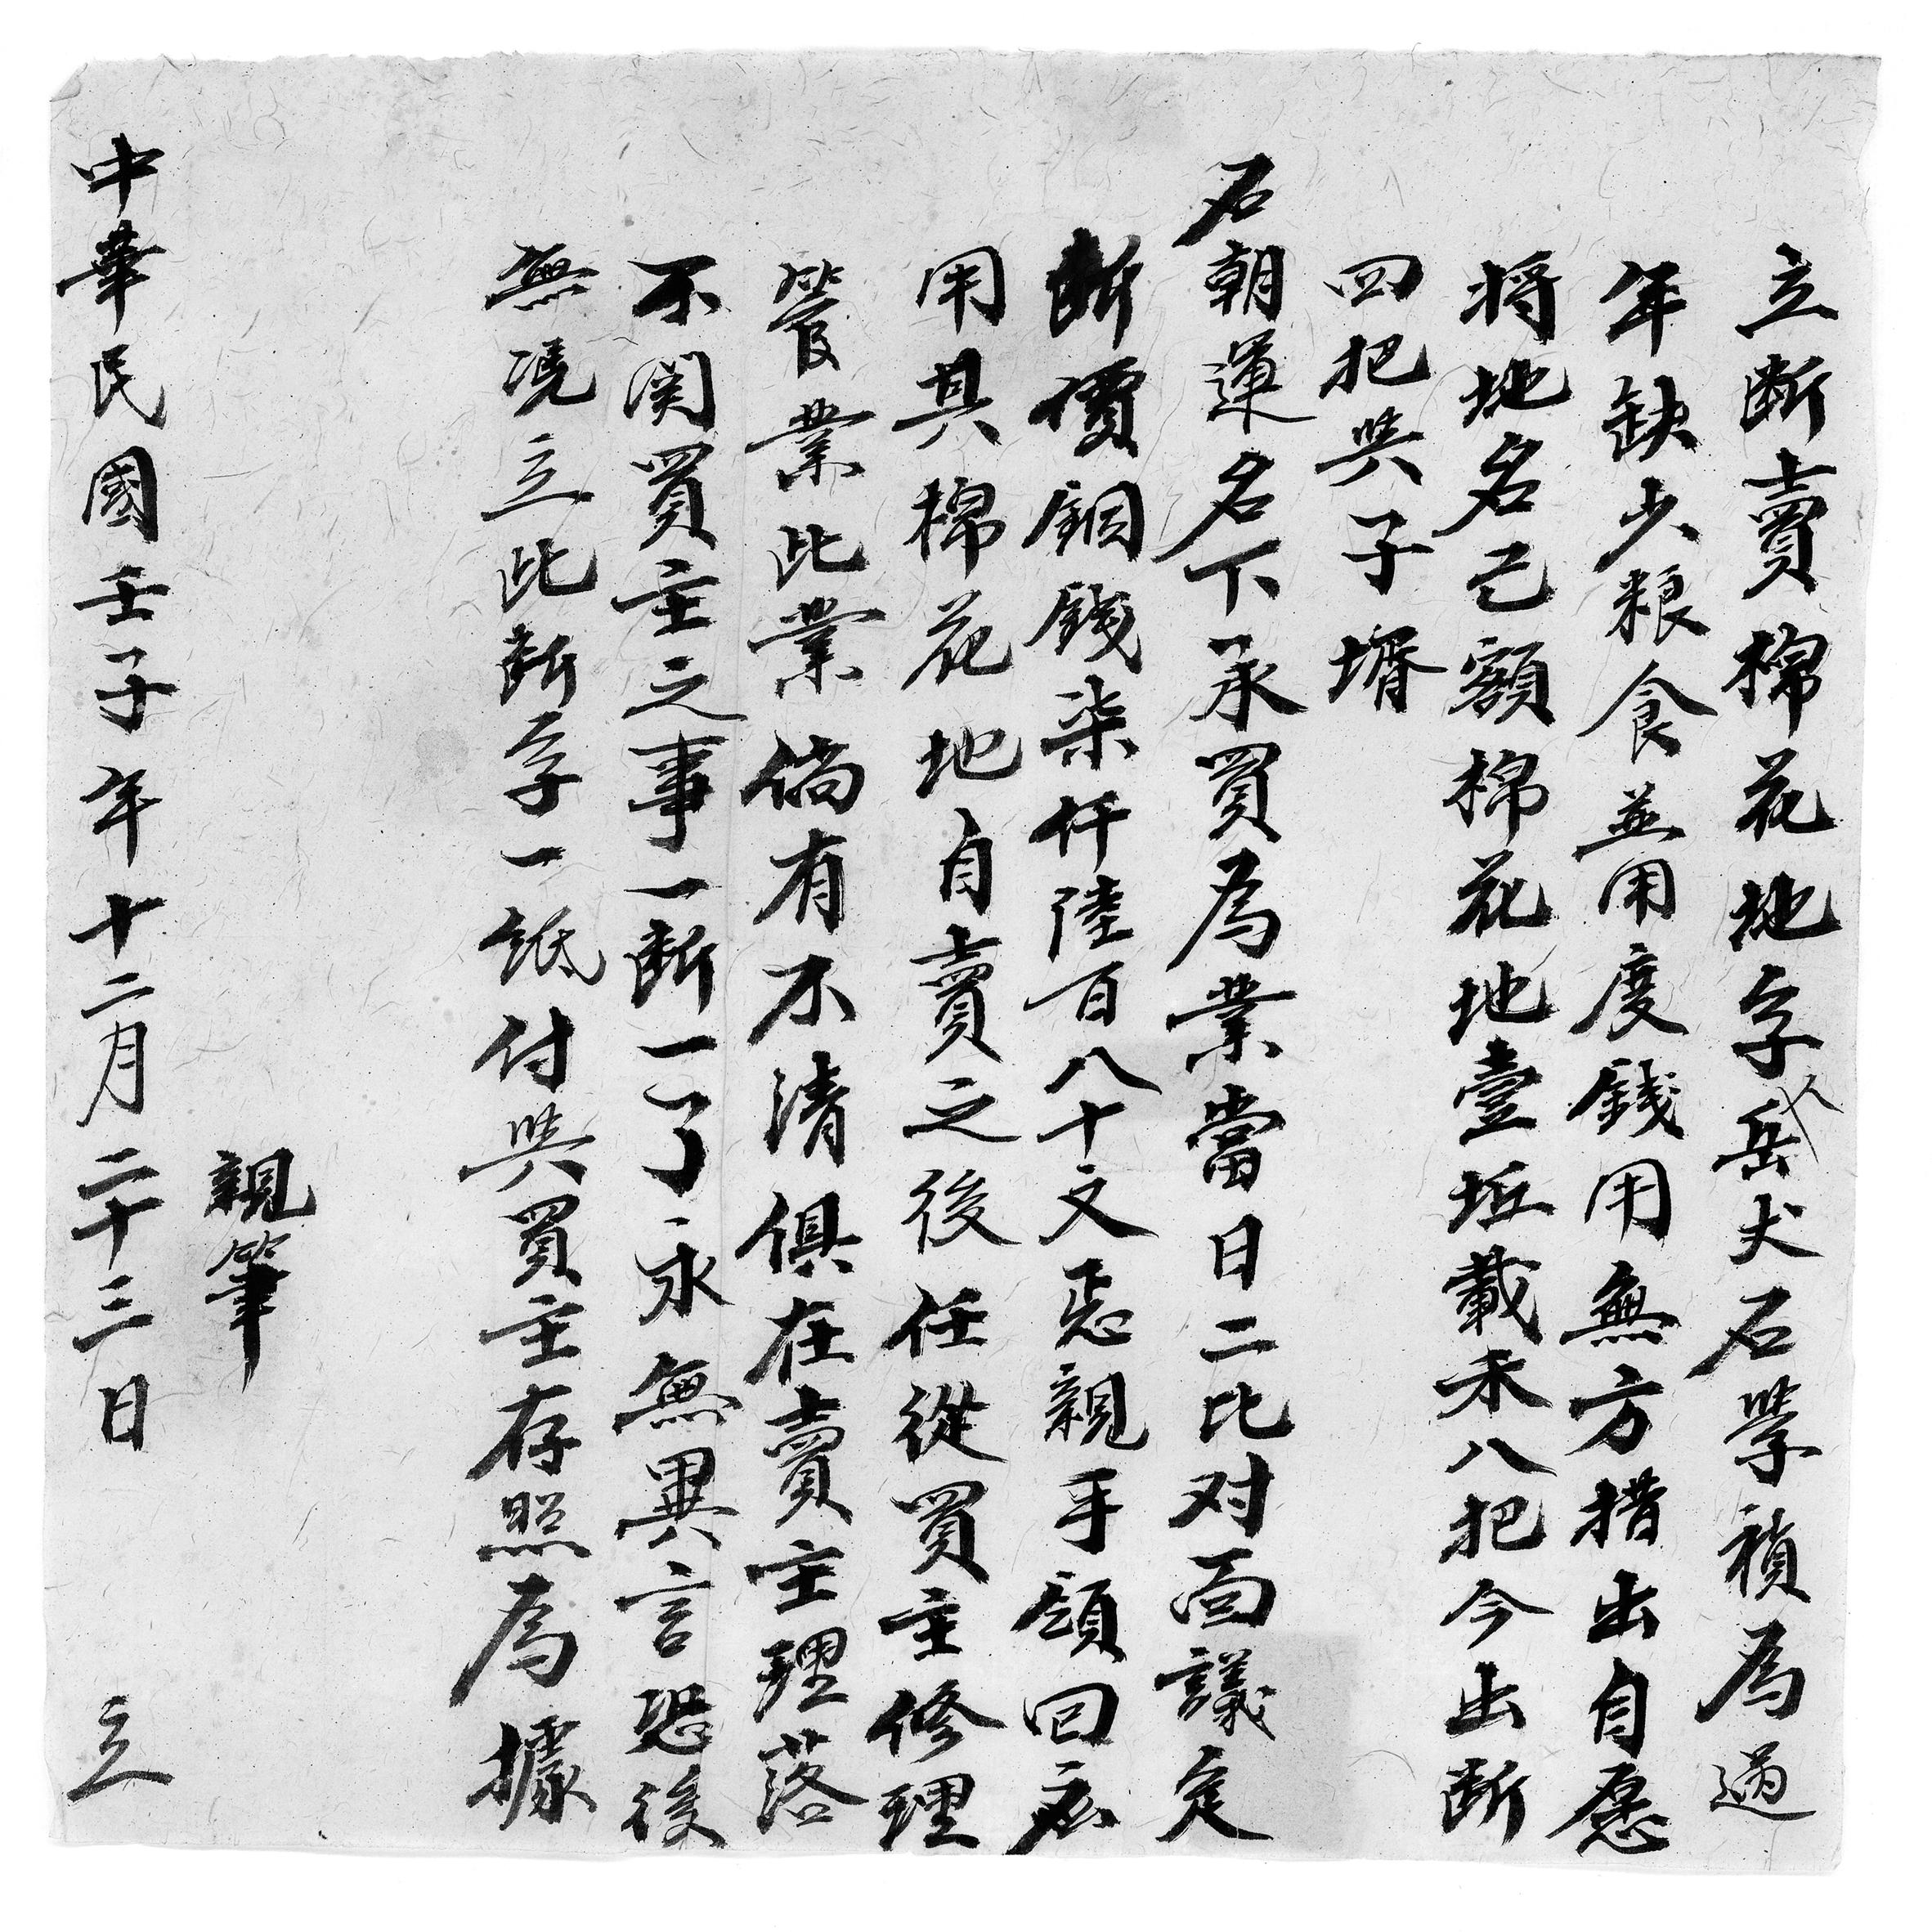 立断賣棉花地字人岳丈石學禎為過
年缺少粮食並用度錢用無方措出自愿
将地名己額棉花地壹坵載禾八把今出断
四把與子壻
石朝運名下承買為業當日二比对面議定
断價銅錢柒仟陸百八十文悉親手領回應
用其棉花地自賣之後任從買主修理
管業此業倘有不清俱在賣主理落
不関買主之事一断一了永無異言恐後
無凴立此断字一紙付與買主存照為據
親筆
中華民國壬子年十二月二十三日 立